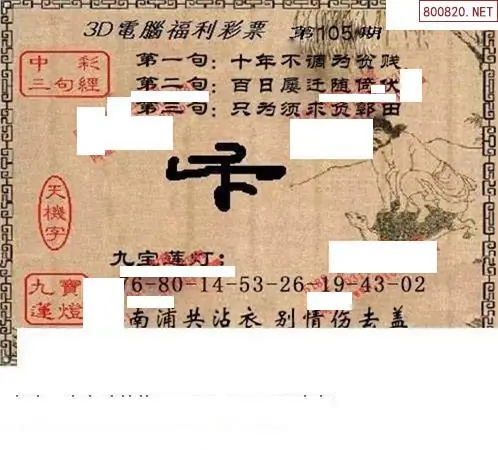 800820.NET
3D電腦福利彩票 第105期
中彩
三句經
第一句：十年不调为贫贱
第二句：百日屡迁随倚伏
第三句：只为须求负郭田
天機字
九宝莲灯：
76-80-14-53-26-19-43-02
九寶
蓮燈
南浦共沾衣 别情伤去盖